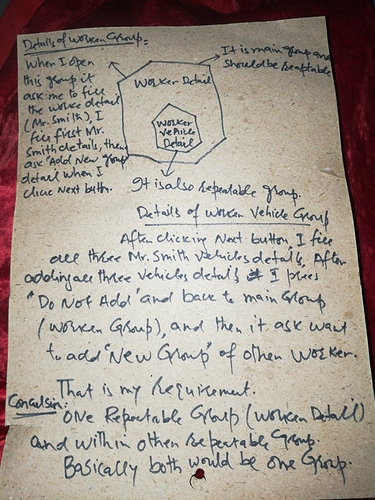 Details of Worker Group:-
When I open
this group it
ask me to fill
the worke detail
(Mr. Smith), I
fill first Mr.
Smith details, then
ask "Add New group"
detail when I
click Next button.
It is main group and
should be
Worker Detail
Worker
Vehicle
Detail
It is also repeatable group.
Details of Worker Vehicle Group
After clicking Next button, I fill
all three Mr. Smith vehicles details. After
adding all three vehicles details I press
"Do Not Add" and back to main Group
(Worker Group), and then it ask want
to add "New Group" of other Worker.
That is my requirement.
ONE Repeatable Group (Worker Detail)
and within other Repeatable Group.
Basically both would be one Group.